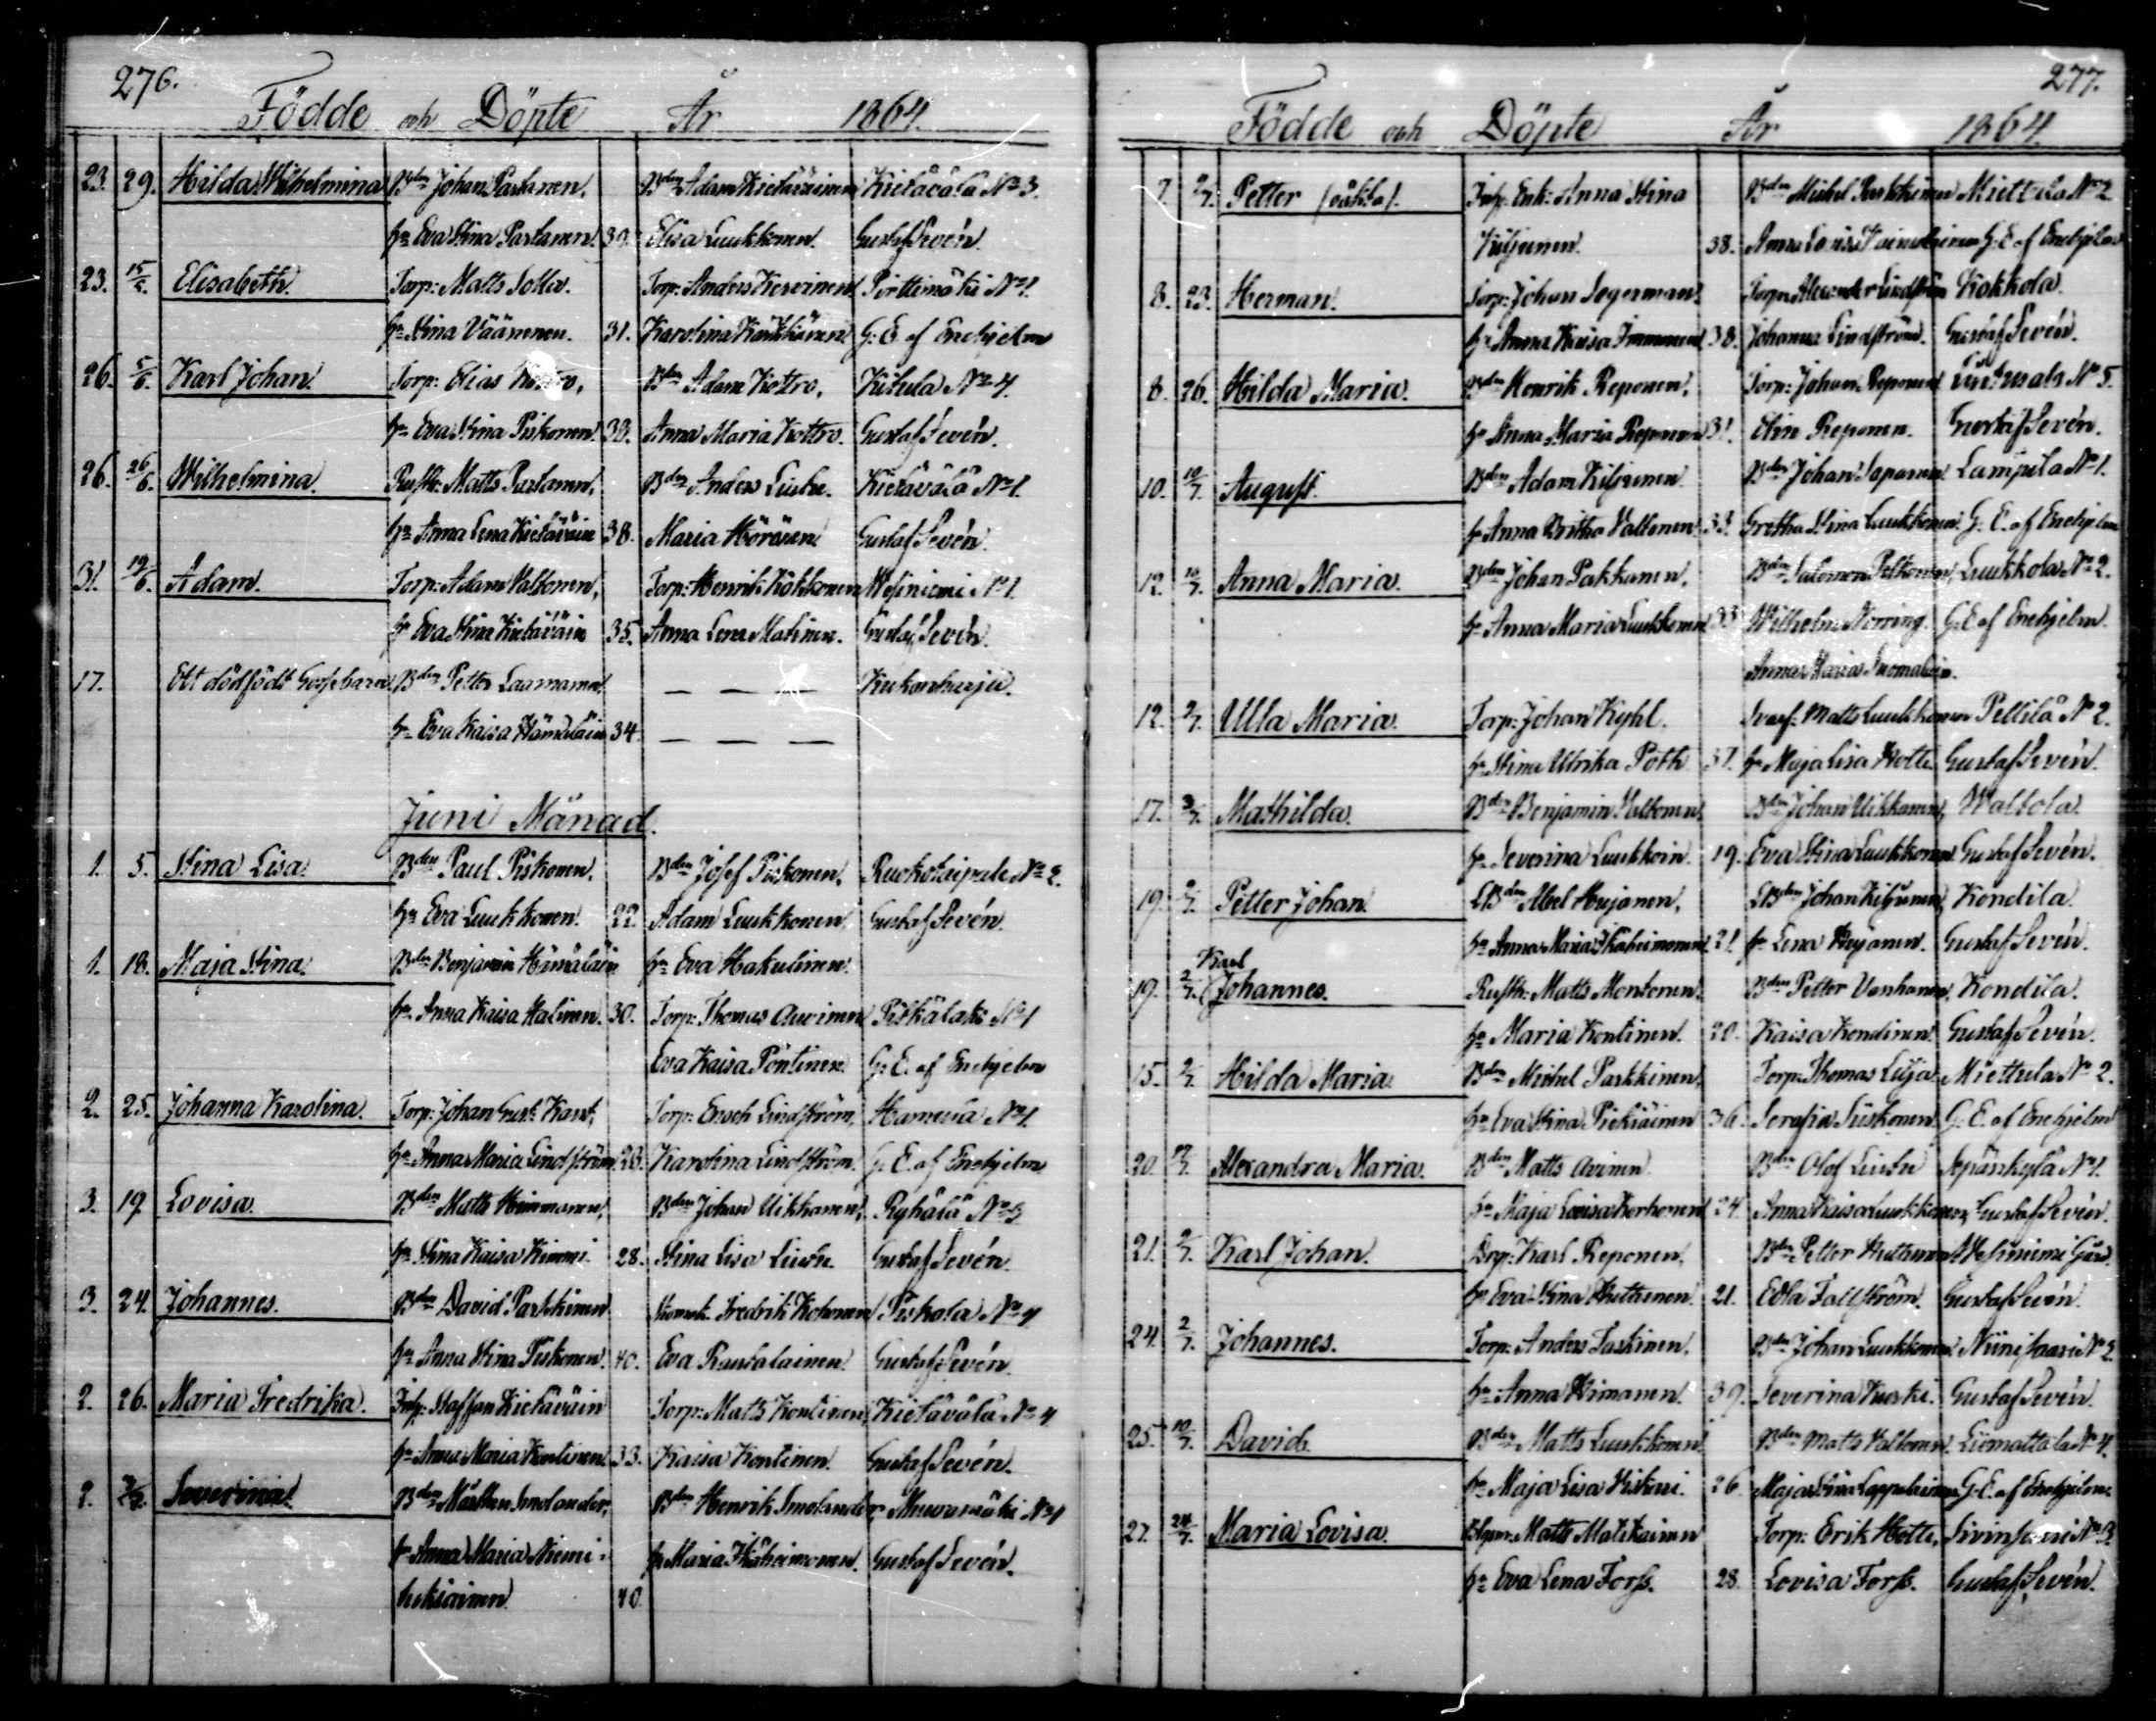 276.
Födde och Döpte År 1864.
23. 29. Hilda Wilhelmina Bdn Johan Partanen, Bdn Adam Kietäväinen Kietävälä No 3.
hu Eva Stina Partanen. 39. Elisa Luukkonen. Gustaf Sevén.
23. 15/6. Elisabeth. Torp: Matts Torp: Anders Kervinen Pirttimäki No 1.
hu Stina Väänenen. 31. Karolina G. E. af Enehjelm
26. 5/6. Karl Johan. Torp: Elias Kottro, Bdn Adam Kottro, Kitula No 4.
hu Eva Stina Piskonen. 38. Anna Maria Kottro. Gustaf Sevén.
26. 26/6. Wilhelmina. Rusth: Matts Partanen, Bdn Anders Liuhn. Kietävälä No 1.
hu Anna Lena Kietäväin 38. Maria Gustaf Sevén.
31. 19/6. Adam. Torp: Adam Valtonen, Torp: Henrik Kokkonen Wesiniemi No 1.
hu Eva Stina Kietäväin 35. Anna Lena Malinen. Gustaf Sevén.
17. Ett dödfödt Gossebarn. Bdn Petter Laamanen. — — — Kukonharju.
hu Eva Kaisa Hämäläin 34. — — —
Juni Månad.
1. 5. Stina Lisa. Bdn Paul Piskonen, Bdn Josef Piskonen, Ruokotaipale No 2.
hu Eva Luukkonen. 22. Adam Luukkonen. Gustaf Sevén.
1. 18. Maja Stina. Bdn Benjamin Hämäläin hu Eva Hakulinen.
hu Anna Kaisa Malinen. 30. Torp: Thomas Auvinen Pitkälaks No 1
Eva Kaisa Pöntinen. G. E. af Enehjelm
2. 25. Johanna Karolina. Torp: Johan Gust: Kant, Torp: Enoch Lindström, Hamula No 1.
hu Anna Maria Lindström 28. Karolina Lindström. G. E. af Enehjelm
3. 19 Lovisa. Bdn Matts Himmanen, Bdn Johan Uikkanen, Ryhälä No 3
hu Stina Kaisa Kimmi. 28. Stina Lisa Liuhn. Gustaf Sevén.
3. 24. Johannes. Bdn David Parkkinen Skomak. Fredrik Kohonen Piskola No 4
hu Anna Stina Piskonen. 40. Eva Rautalainen. Gustaf Sevén.
2. 26. Maria Fredrika. Inh: Staffan Kietäväin Torp: Matts Kontinen, Kietävälä No 4
hu Anna Maria Kontinen. 33. Kaisa Kontinen. Gustaf Sevén.
2. Severina. Bdn Mårthen Smolander, Bdn Henrik Smolander Muuramäki No 1
hu Anna Maria Niemi- hu Maria Ikäheimonen. Gustaf Sevén.
hukiainen. 40
277.
Födde och Döpte År 1864.
7. 2/7. Petter /oäkta/. Inh: Enk: Anna Stina Bdn Mickel Parkkinen Miettula No 2
Kiljunen. 38. Anna Lovisa G. E. af Enehjelm
8. 23. Herman. Torp: Johan Segerman. Torp: Alexander Lindström Kokkola.
hu Anna Kaisa Immonen. 38. Johanna Lindström. Gustaf Sevén.
8. 26. Hilda Maria. Bdn Henrik Reponen, Torp: Johan Reponen No 5.
hu Anna Maria Reponen 31. Elin Reponen. Gustaf Sevén.
10. 10/7. August. Bdn Adam Kiljunen Bdn Johan Saparen Lampila No 1.
hu Anna Britha Valtonen 33. Gretha Stina Luukkonen. G. E. af Enehjelm
12. 10/7. Anna Maria. Bdn Johan Pakkanen, Bdn Salomon Peltonen, Luukkola No 2.
hu Anna Maria Luukkonen 33 Wilhelm Norring. G. E. af Enehjelm.
Anna Maria Suomalain.
12. 2/7. Ulla Maria. Torp: Johan Kyhl. Svarf: Matts Luukkonen Pellilä No 2.
hu Stina Ulrika Poth 37. hu Maja Lisa Holti. Gustaf Sevén.
17. 3/7. Mathilda. Bdn Benjamin Valtonen. Bdn Johan Uikkanen, Waltola.
hu Severina Luukkoin. 19. Eva Stina Luukkonen. Gustaf Sevén.
19. 2/7. Petter Johan. LBdn Abel Hujanen, LBdn Johan Kiljunen, Kondila.
hu Anna Maria Ikäheimonen 21. hu Lena Hujanen. Gustaf Sevén.
Karl
19. 2/7. Johannes. Rusth: Matts Montonen. Bdn Petter Vanhanen, Kondila.
hu Maria Kontinen. 20. Kaisa Kondinen. Gustaf Sevén.
15. 2/7. Hilda Maria. Bdn Michel Parkkinen, Torp: Thomas Miettula No 2.
hu Eva Stina 36. Serafia Piiskonen. G. E. af Enehjelm
20. 17/7. Alexandra Maria. Bdn Matts Avinen Bdn Olof Liuhn Sepänkylä No 1.
hu Maja Lovisa Korhonen 24. Anna Kaisa Luukkonen, Gustaf Sevén.
21. 2/7. Karl Johan. Drg: Karl Reponen, Bdn Petter Huttunen Wesiniemi Gård.
hu Eva Stina Huttunen. 21. Edla Fallström. Gustaf Sevén.
24. 2/7. Johannes. Torp: Anders Taskinen, Bdn Johan Luukkonen Niinisaari No 2.
hu Anna Himanen. 39. Severina Kuoski. Gustaf Sevén.
25. 10/7. David. Bdn Matts Luukkonen. Bdn Matts Valtonen. Liimattala No 4.
hu Maja Lisa Kiskari. 26. Maja Stina Lappalainen G. E. af Enehjelm.
27. 24/7. Maria Lovisa. Matts Matikainen Torp: Erik Holti, No 3.
hu Eva Lena Forss. 28. Lovisa Forss. Gustaf Sevén.